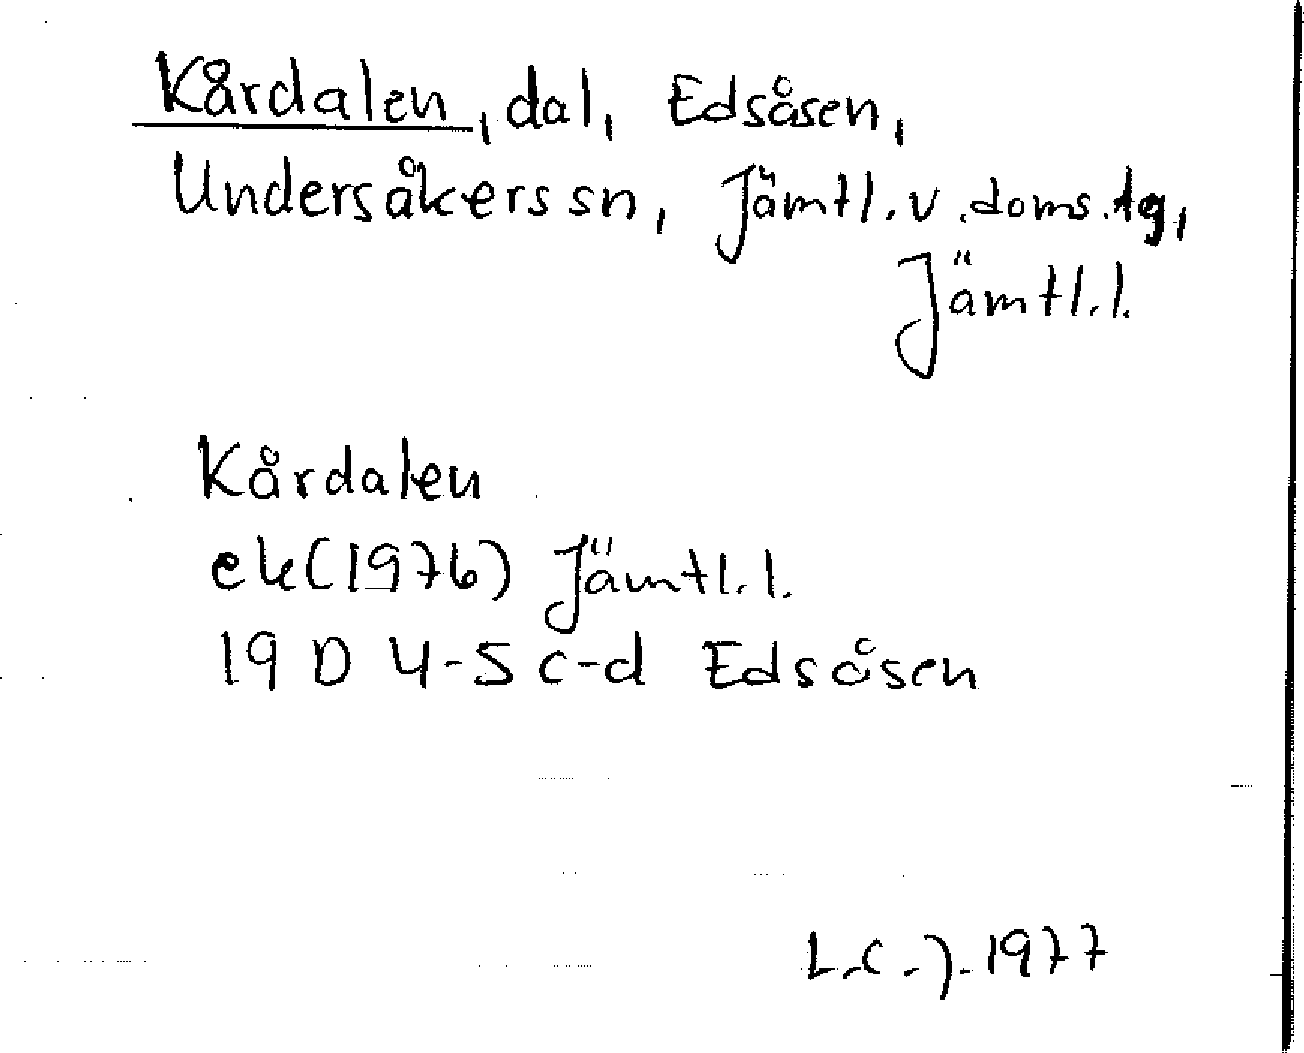 Kårdalen, dal, Edsåsen,
Undersåkers sn, Jämtl. v. doms. tg,
Jämtl. l.
Kårdalen
ek (1976) Jämtl. l.
19 D 4-5 c-d Edsåsen
L.C.J. 1977